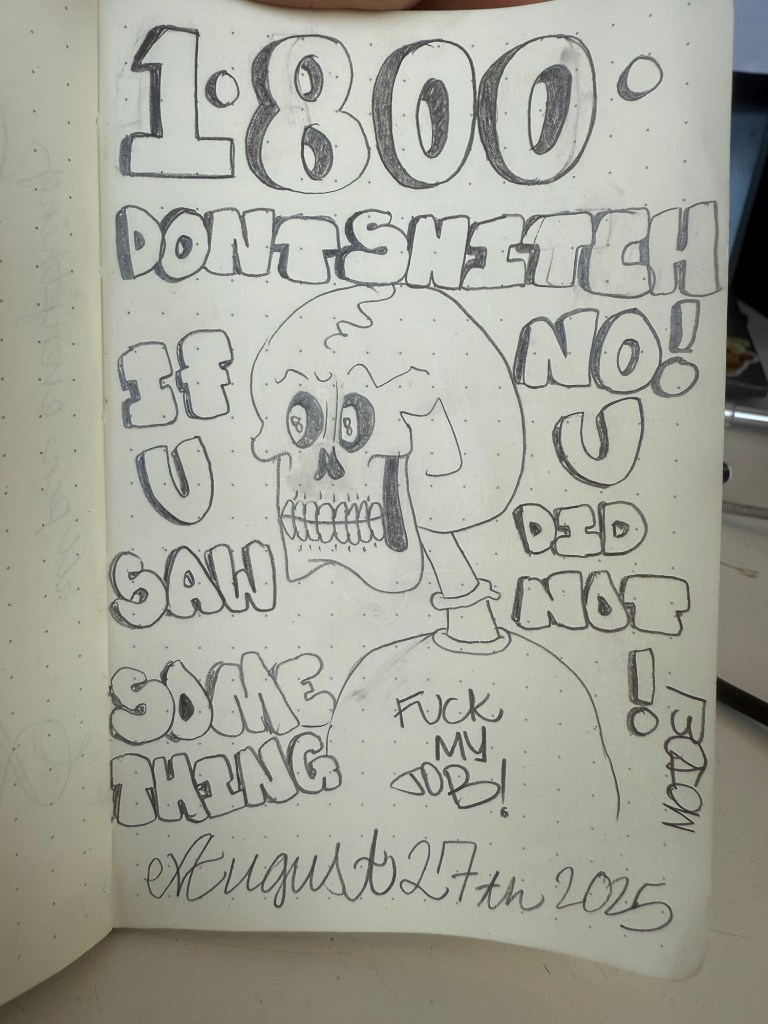 1·800·
DONTSNITCH
IF
U
SAW
SOME
THING
NO!
U
DID
NOT
!
FUCK
MY
JOB!
August 27th 2025